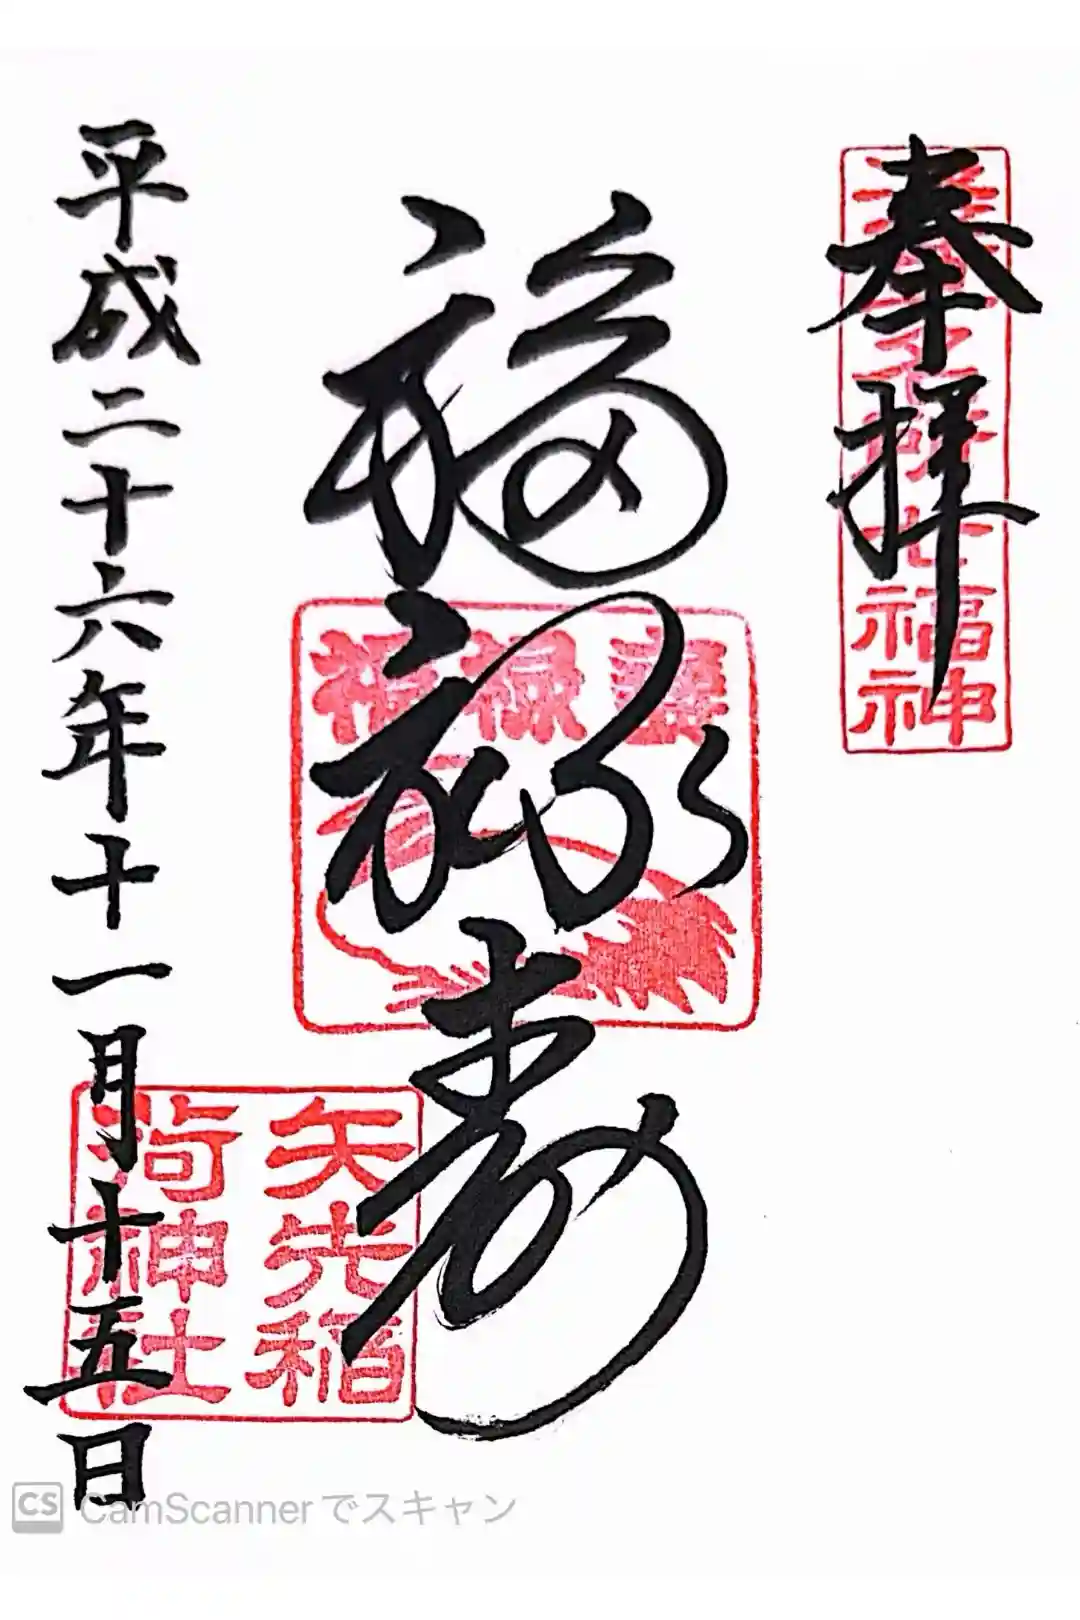 奉拝
浅草名所七福神
福禄寿
福禄寿
矢先稲
荷神社
平成二十六年十一月十五日
CS CamScannerでスキャン